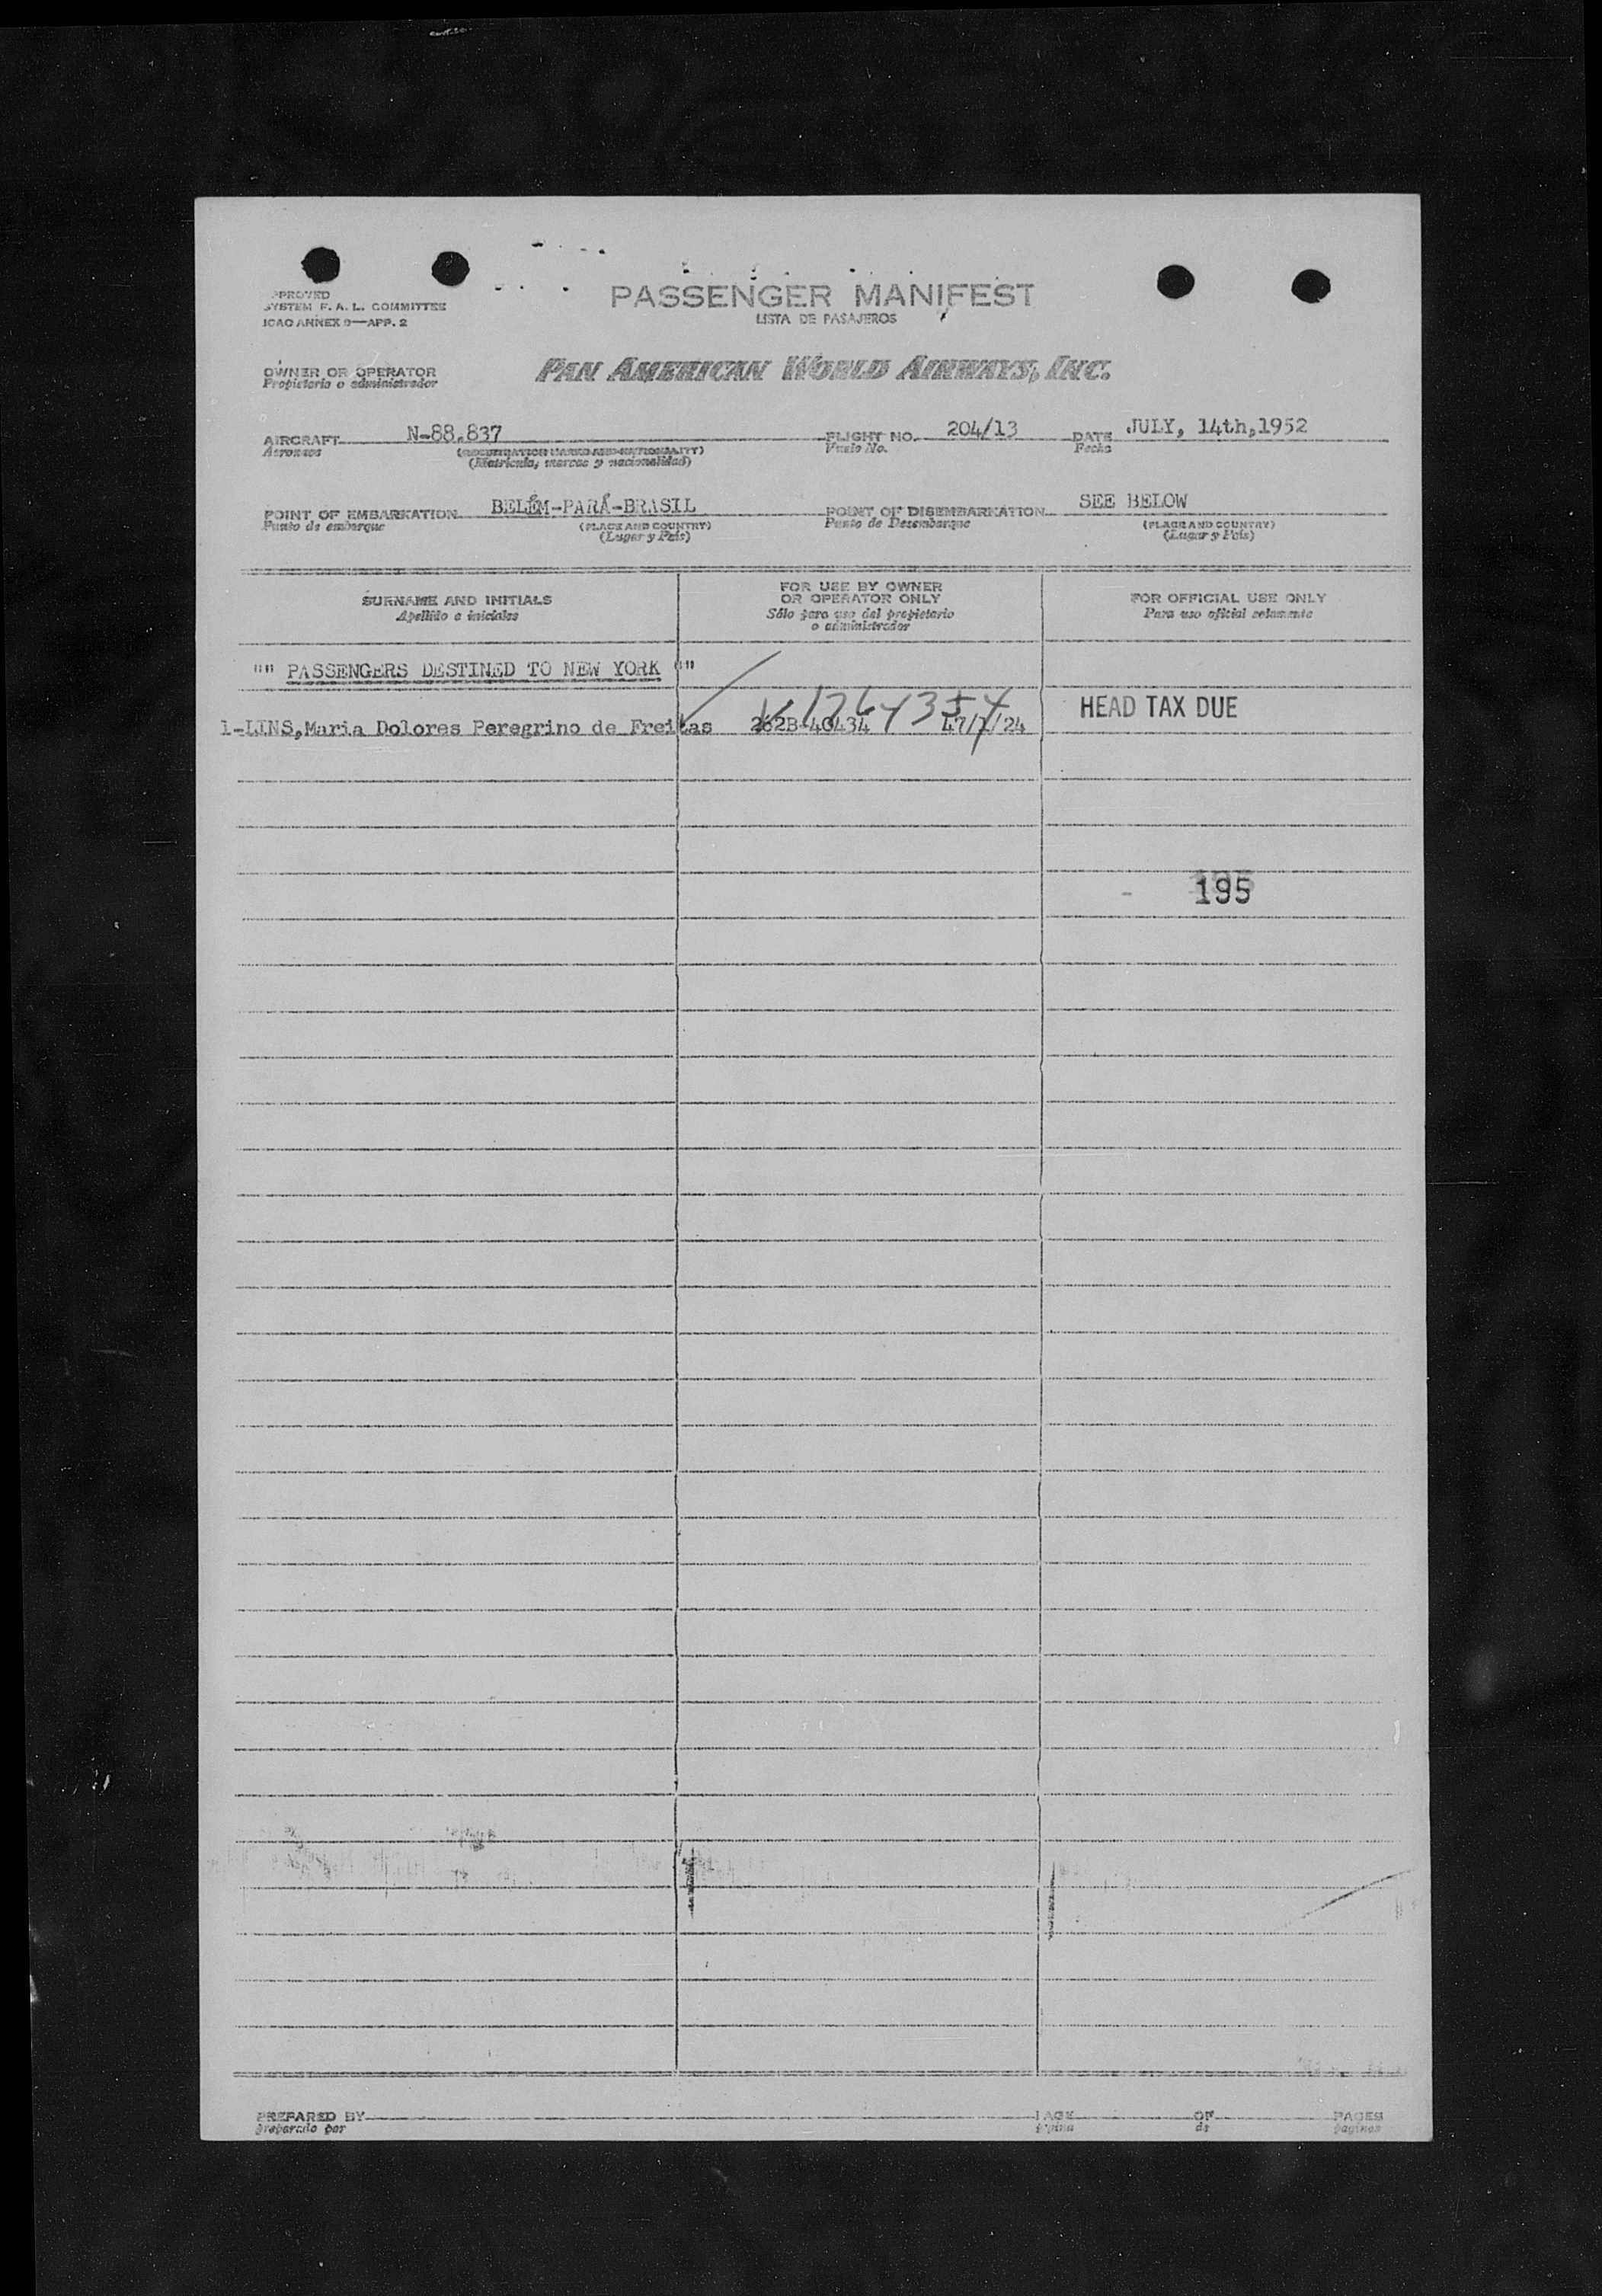 PASSENGER MANIFEST
LISTA DE PASAJEROS
SYSTEM F. A. L. COMMITTEE
ICAO ANNEX 9—APP. 2
OWNER OR OPERATOR
Propietario o administrador
PAN AMERICAN WORLD AIRWAYS, INC.
AIRCRAFT N-88.837 FLIGHT NO. 204/13 DATE JULY, 14th,1952
Aeronave Vuelo No. Fecha
(Matrícula, marcas y nacionalidad)
POINT OF EMBARKATION BELÉM-PARÁ-BRASIL POINT OF DISEMBARKATION SEE BELOW
Punto de embarque (PLACE AND COUNTRY) Punto de Desembarque (PLACE AND COUNTRY)
(Lugar y País) (Lugar y País)
SURNAME AND INITIALS
Apellido e iniciales
FOR USE BY OWNER
OR OPERATOR ONLY
Sólo para uso del propietario
o administrador
FOR OFFICIAL USE ONLY
Para uso oficial solamente
"" PASSENGERS DESTINED TO NEW YORK ""
1-LINS,Maria Dolores Peregrino de Freitas 262B-40434 47/1/24
HEAD TAX DUE
195
PREPARED BY PAGE OF PAGES
preparado por página de páginas